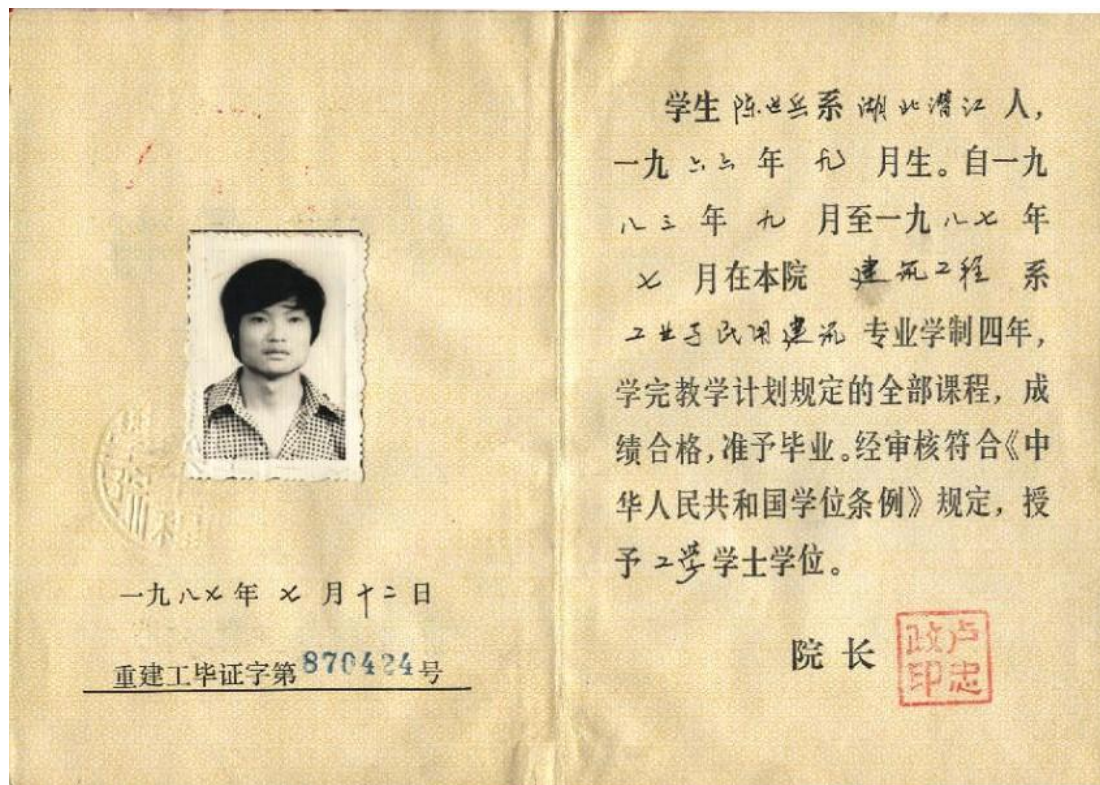 一九八七年七月十二日
重建工毕证字第870424号
学生陈世岳系湖北潜江人,
一九六六年九月生。自一九
八三年九月至一九八七年
七月在本院建筑工程系
工业与民用建筑专业学制四年,
学完教学计划规定的全部课程,成
绩合格,准予毕业。经审核符合《中
华人民共和国学位条例》规定,授
予工学学士学位。
院长
卢忠政印